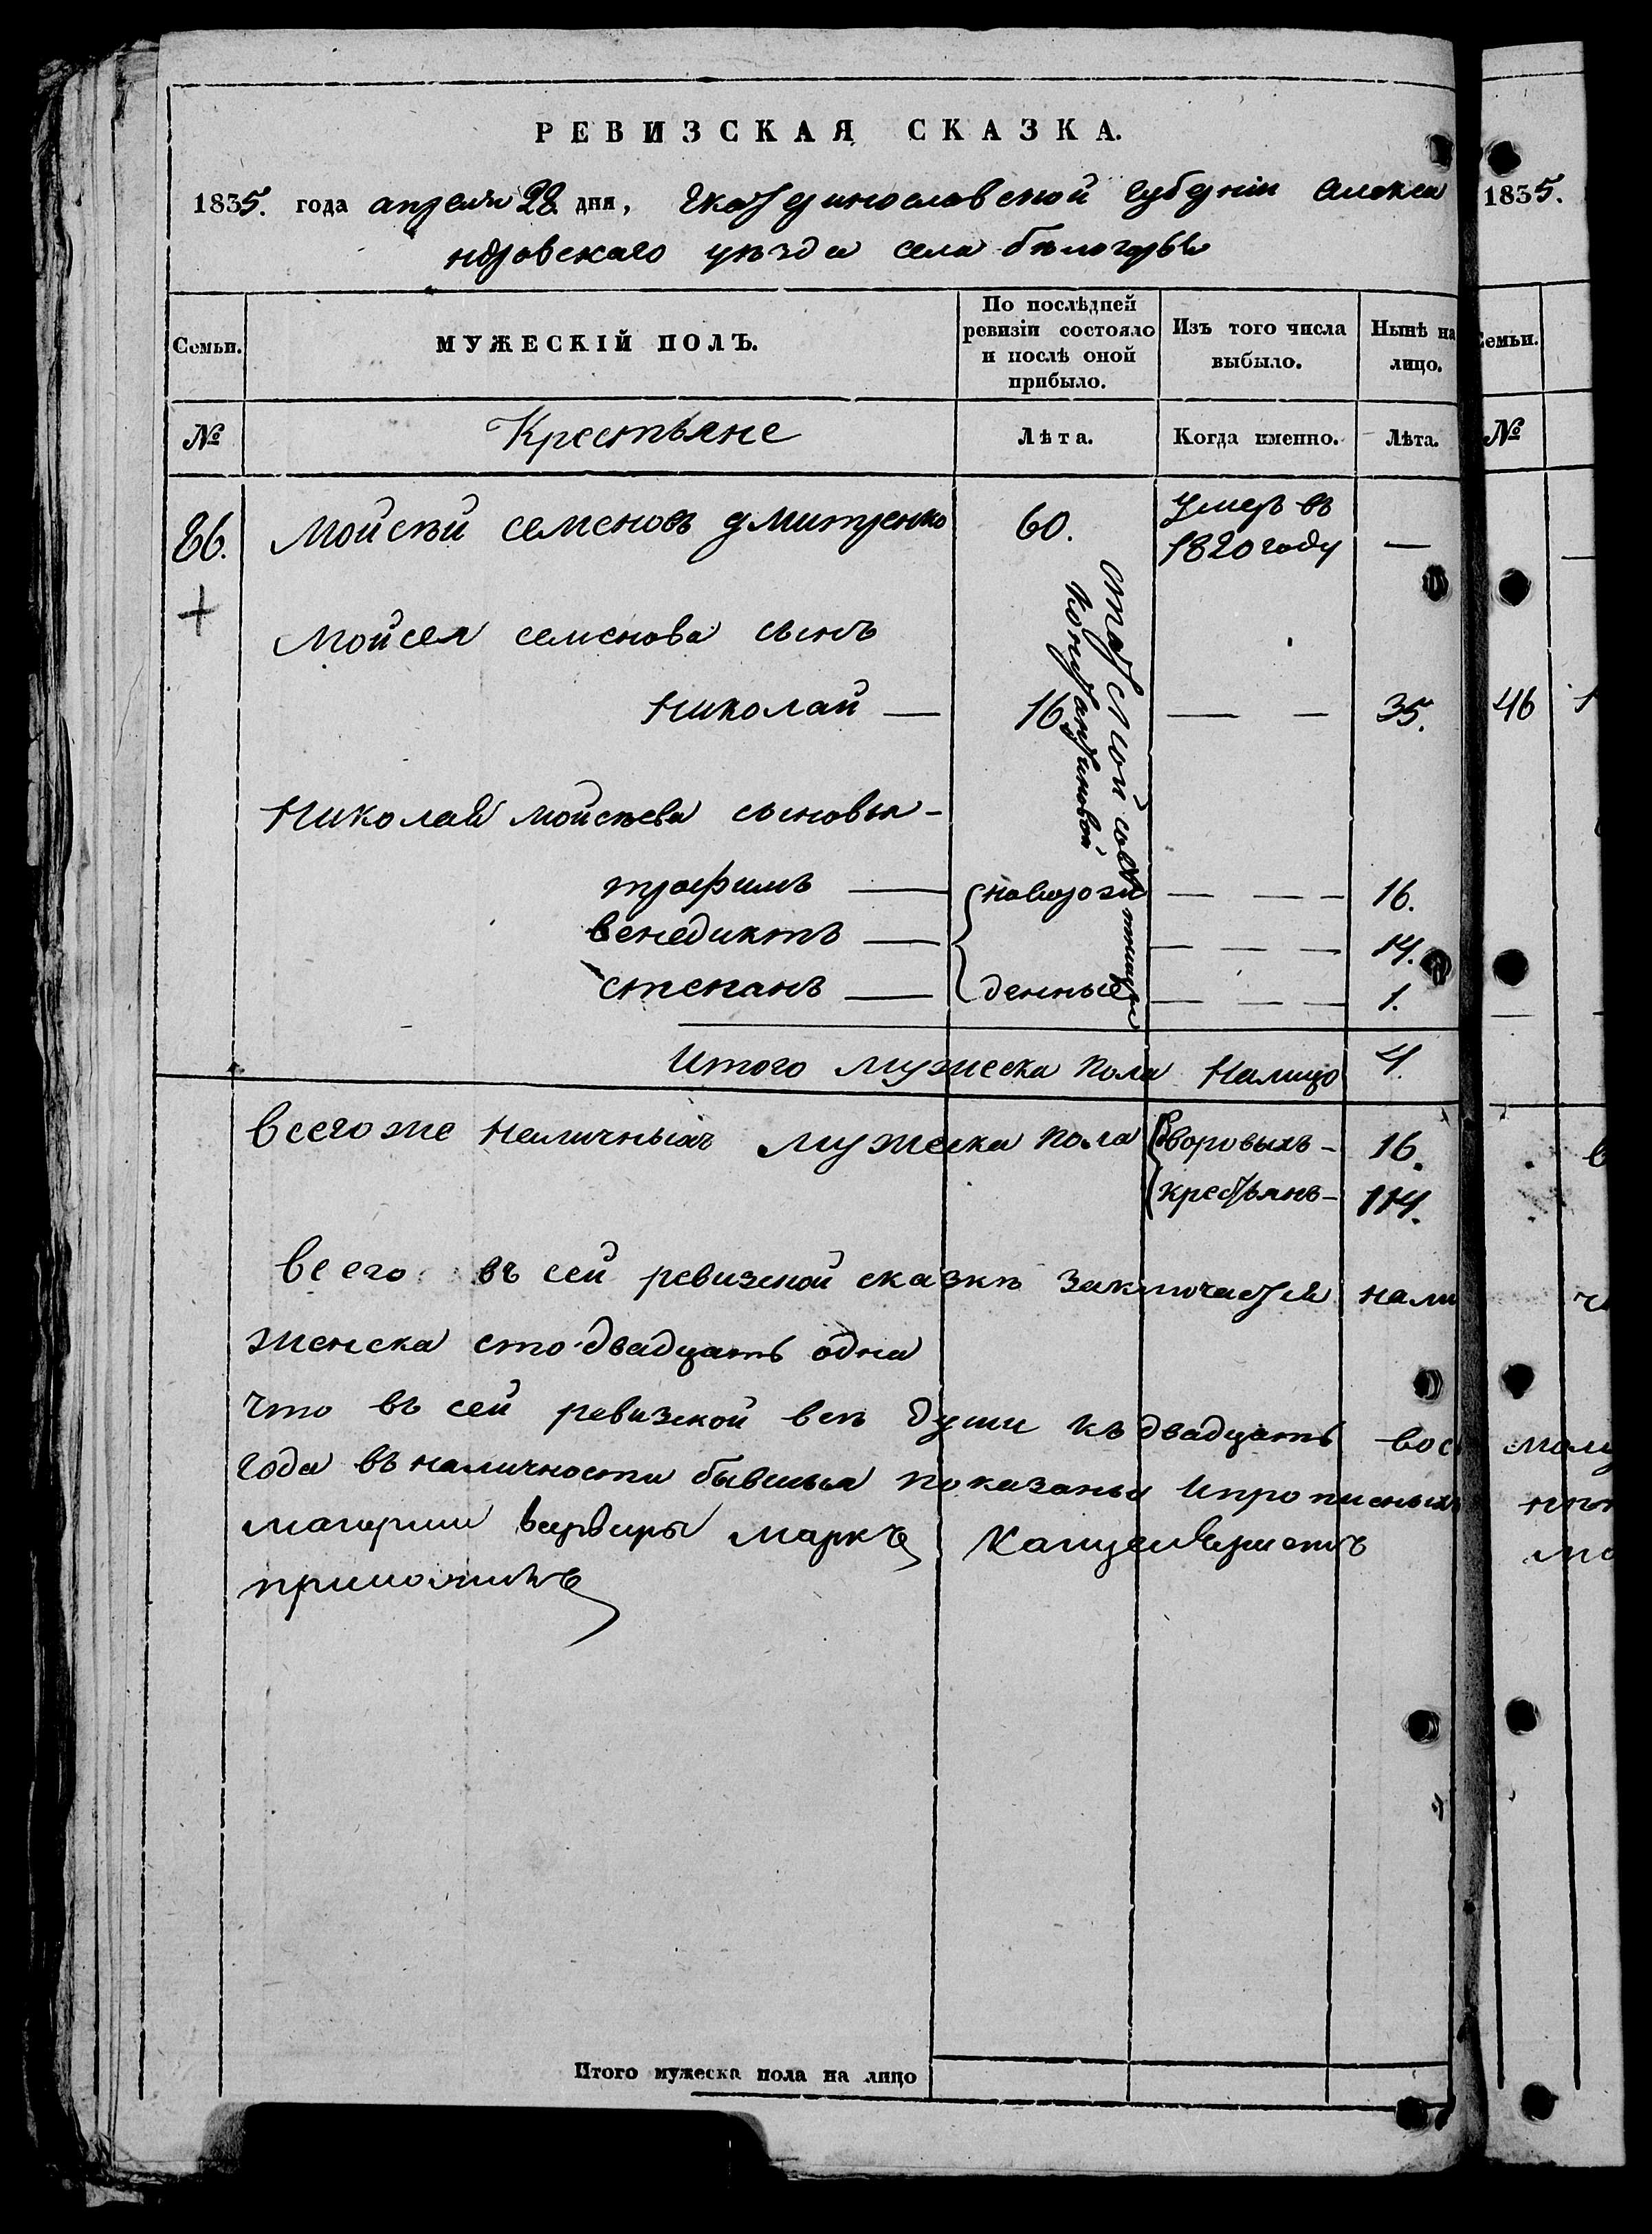 РЕВИЗСКАЯ СКАЗКА.
1835. года апреля 28. дня, Екатеринославской губернiи алекса
ндровскаго уѣзда села бѣлогорья
Семьи.
МУЖЕСКІЙ ПОЛЪ.
По послѣдней ревизіи состояло и послѣ оной прибыло.
Изъ того числа выбыло.
Нынѣ на лицо.
№
Крестьяне
Лѣта.
Когда именно.
Лѣта.
Мойсей семеновъ дмитренко 60. умеръ въ
1820 году —
Мойсея семенова сынъ
Николай — 16 — — 35.
статской советницы
Константиновой
Николая мойсеева сыновья -
трофимъ — новорож — — — 16.
венедиктъ — — — — 14.
степанъ — денные — — — 1.
Итого мужеска пола налицо 4
всего же наличныхъ мужеска пола дворовыхъ - 16.
крестьянъ - 114.
Всего въ сей ревизской сказкѣ заключается нали
женска сто двадцать одна
что въ сей ревизской всѣ души къ двадцать вос
года въ наличности бывшыя показаны и прописныхъ
марке канцеляристъ
Итого мужеска пола на лицо
1835.
Семьи.
№
46